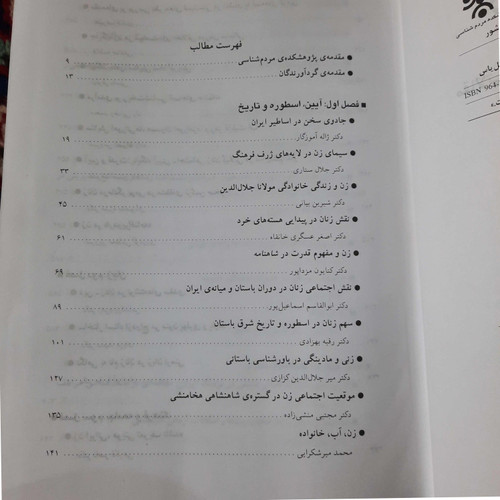 فهرست مطالب
مقدمه‌ی پژوهشکده‌ی مردم‌شناسی ۹
مقدمه‌ی گردآورندگان ۱۳
■ فصل اول: آیین، اسطوره و تاریخ
● جادوی سخن در اساطیر ایران
دکتر ژاله آموزگار ۱۹
● سیمای زن در لایه‌های ژرف فرهنگ
دکتر جلال ستاری ۳۳
● زن و زندگی خانوادگی مولانا جلال‌الدین
دکتر شیرین بیانی ۴۵
● نقش زنان در پیدایی هسته‌های خرد
دکتر اصغر عسگری خانقاه ۶۱
● زن و مفهوم قدرت در شاهنامه
دکتر کتایون مزداپور ۶۹
● نقش اجتماعی زنان در دوران باستان و میانه‌ی ایران
دکتر ابوالقاسم اسماعیل‌پور ۸۹
● سهم زنان در اسطوره و تاریخ شرق باستان
دکتر رقیه بهزادی ۱۰۱
● زنی و مادینگی در باورشناسی باستانی
دکتر میر جلال‌الدین کزازی ۱۲۷
● موقعیت اجتماعی زن در گستره‌ی شاهنشاهی هخامنشی
دکتر مجتبی منشی‌زاده ۱۳۵
● زن، آب، خانواده
محمد میرشکرایی ۱۴۱
مردم شناسی
شور
ل یاس
ISBN 964